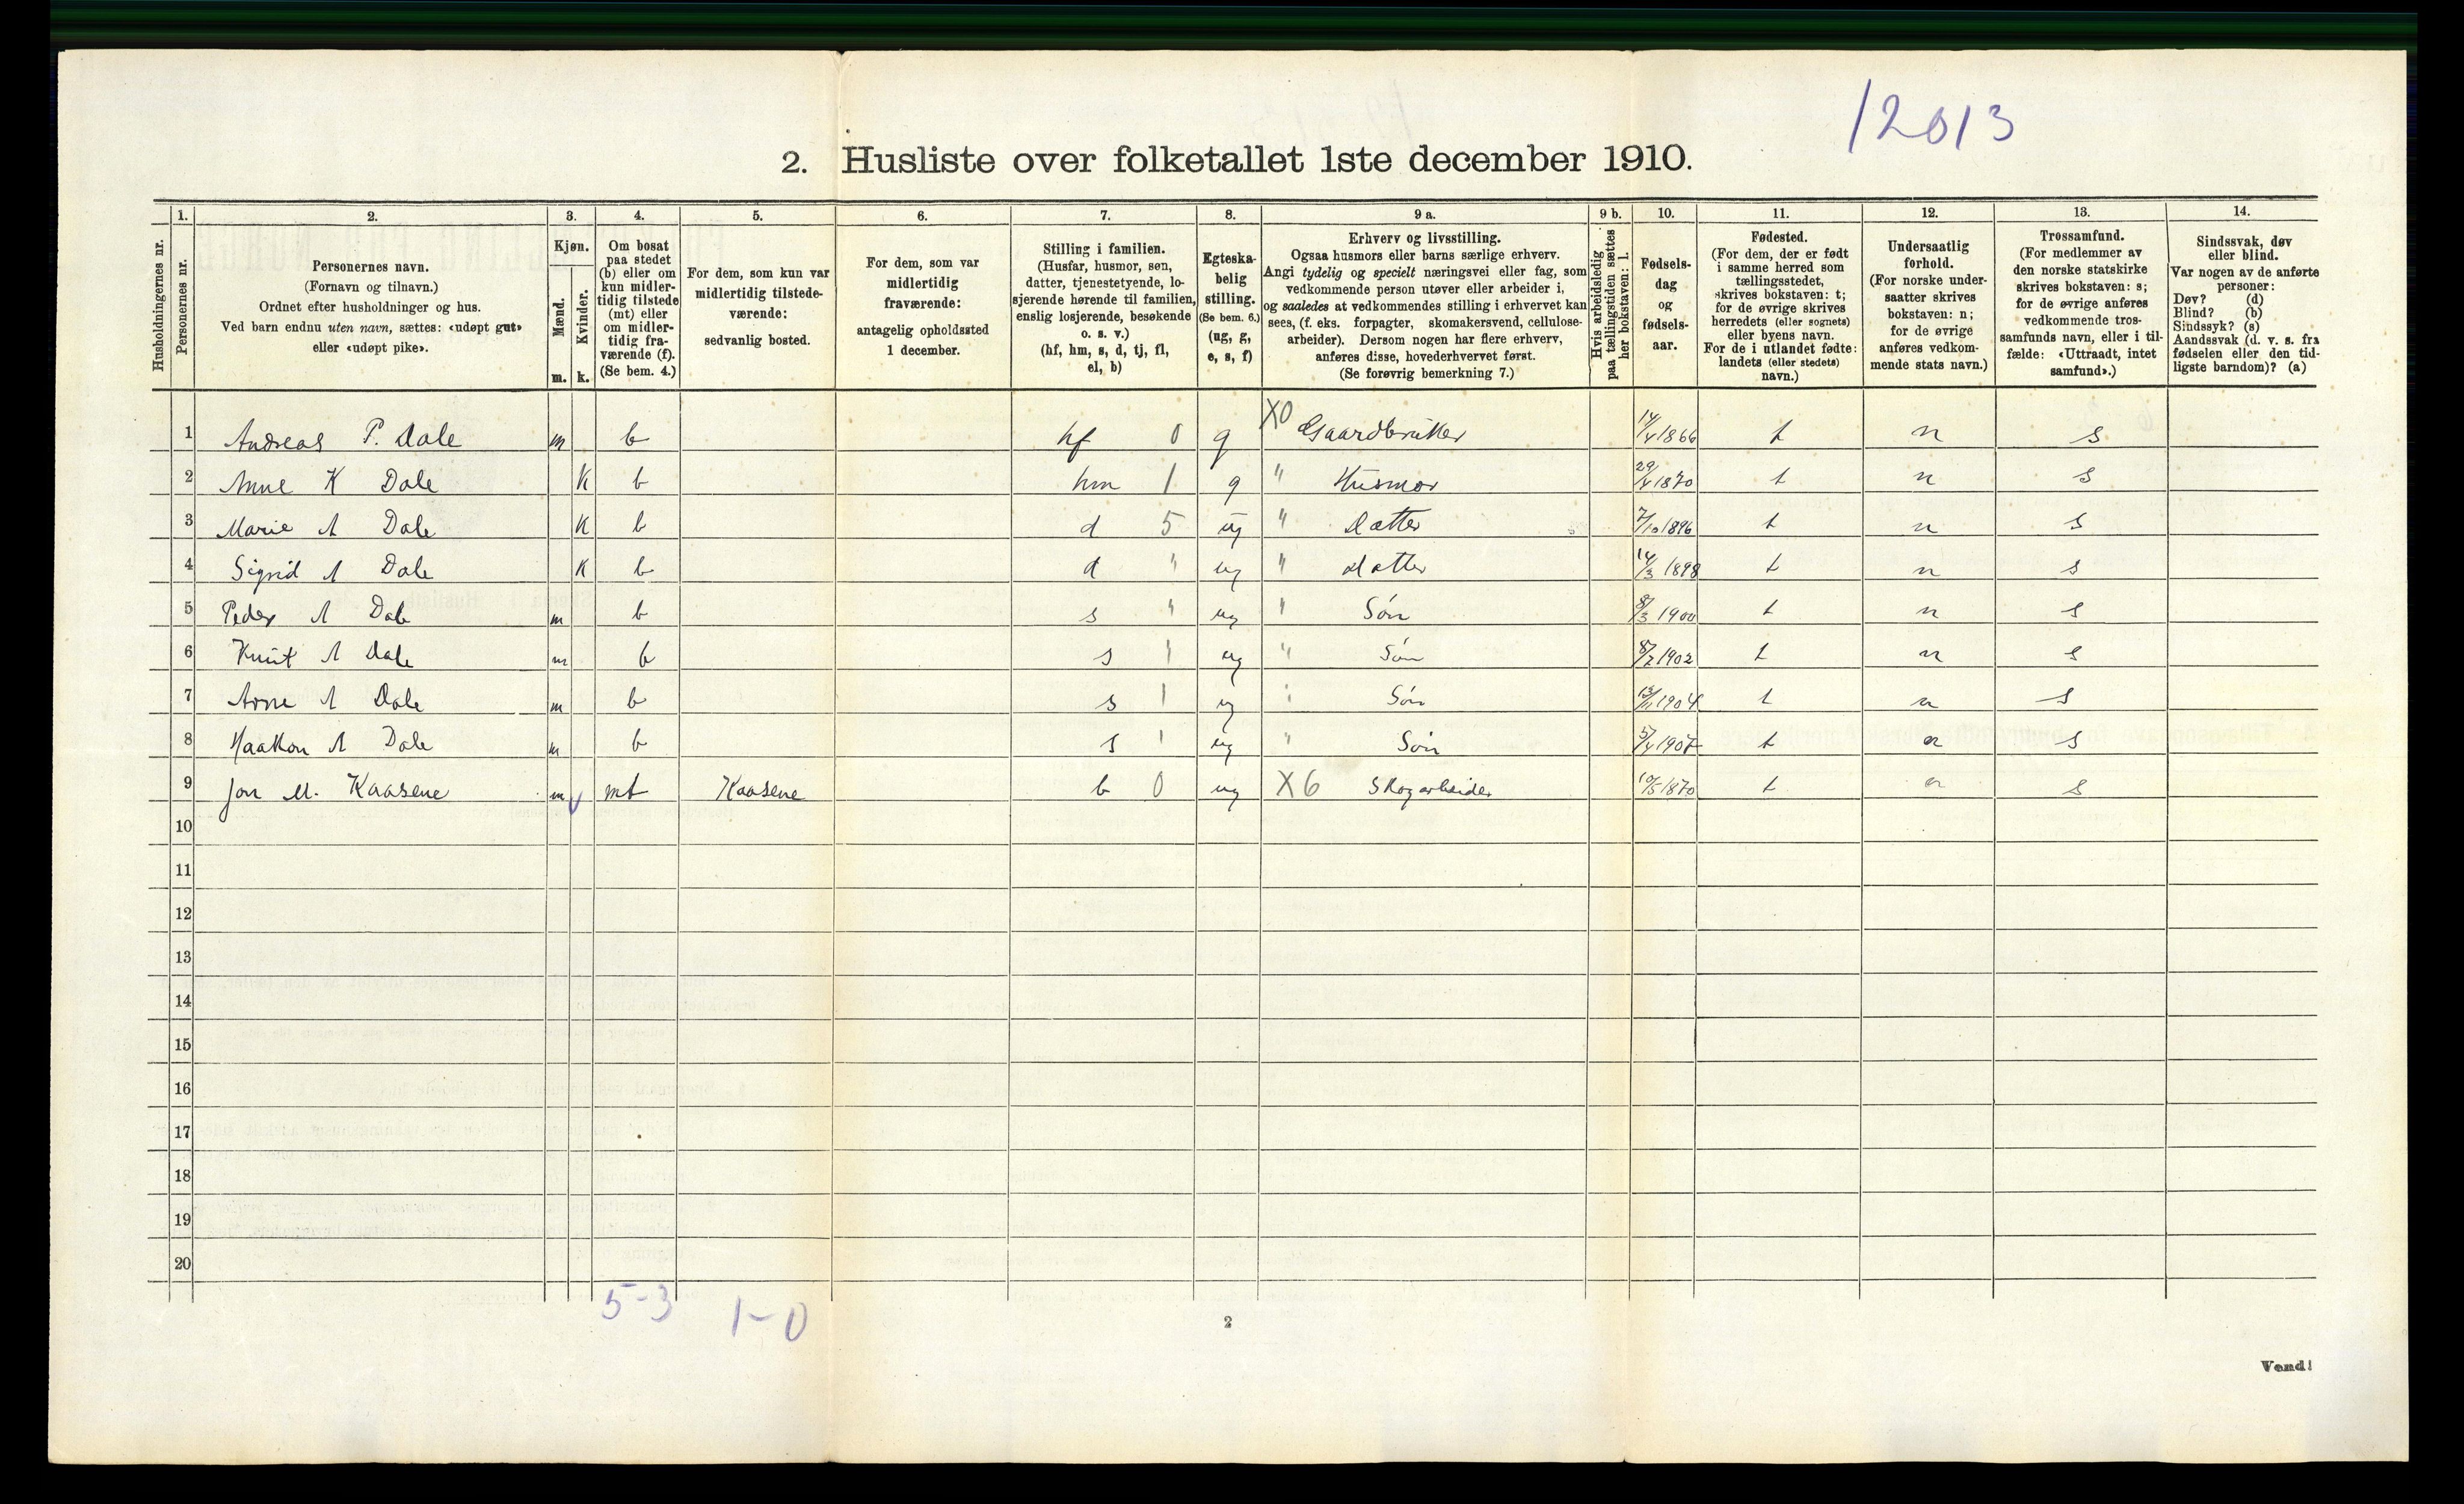 12013
2. Husliste over folketallet 1ste december 1910.
Husholdningernes nr.
1. Personernes nr.
2. Personernes navn.
(Fornavn og tilnavn.)
Ordnet efter husholdninger og hus.
Ved barn endnu uten navn, sættes: «udøpt gut»
eller «udøpt pike».
3. Kjøn.
Mænd. m.
Kvinder. k.
4. Om bosat
paa stedet
(b) eller om
kun midler-
tidig tilstede
(mt) eller
om midler-
tidig fra-
værende (f).
(Se bem. 4.)
5. For dem, som kun var
midlertidig tilstede-
værende:
sedvanlig bosted.
6. For dem, som var
midlertidig
fraværende:
antagelig opholdssted
1 december.
7. Stilling i familien.
(Husfar, husmor, søn,
datter, tjenestetyende, lo-
sjerende hørende til familien,
enslig losjerende, besøkende
o. s. v.)
(hf, hm, s, d, tj, fl,
el, b)
8. Egteska-
belig
stilling.
(Se bem. 6.)
(ug, g,
e, s, f)
9 a. Erhverv og livsstilling.
Ogsaa husmors eller barns særlige erhverv.
Angi tydelig og specielt næringsvei eller fag, som
vedkommende person utøver eller arbeider i,
og saaledes at vedkommendes stilling i erhvervet kan
sees, (f. eks. forpagter, skomakersvend, cellulose-
arbeider). Dersom nogen har flere erhverv,
anføres disse, hovederhvervet først.
(Se forøvrig bemerkning 7.)
9 b. Hvis arbeidsledig
paa tællingstiden sættes
her bokstaven: l.
10. Fødsels-
dag
og
fødsels-
aar.
11. Fødested.
(For dem, der er født
i samme herred som
tællingsstedet,
skrives bokstaven: t;
for de øvrige skrives
herredets (eller sognets)
eller byens navn.
For de i utlandet fødte:
landets (eller stedets)
navn.)
12. Undersaatlig
forhold.
(For norske under-
saatter skrives
bokstaven: n;
for de øvrige
anføres vedkom-
mende stats navn.)
13. Trossamfund.
(For medlemmer av
den norske statskirke
skrives bokstaven: s;
for de øvrige anføres
vedkommende tros-
samfunds navn, eller i til-
fælde: «Uttraadt, intet
samfund».)
14. Sindssvak, døv
eller blind.
Var nogen av de anførte
personer:
Døv? (d)
Blind? (b)
Sindssyk? (s)
Aandssvak (d. v. s. fra
fødselen eller den tid-
ligste barndom)? (a)
1 Andreas P. Dale m b hf 0 g X0 Gaardbruker 14/4 1866 t n s
2 Anne K Dale K b hm 1 g " Husmor 29/4 1870 t n s
3 Marie A Dale K b d 5 ug " Datter 7/10 1896 t n s
4 Sigrid A Dale K b d " ug " datter 14/3 1898 t n s
5 Peder A Dale m b s " ug " Søn 8/3 1900 t n s
6 Knut A Dale m b s ug " Søn 8/2 1902 t n s
7 Arne A Dale m b s ug " Søn 13/11 1904 t n s
8 Haakon A Dale m b s ug " Søn 5/4 1907 t n s
9 Jon M. Kaasene m mt Kaasene b 0 ug X6 Skogarbeider 10/5 1870 t n s
10
11
12
13
14
15
16
17
18
19
20
5-3 1-0
2
Vend!